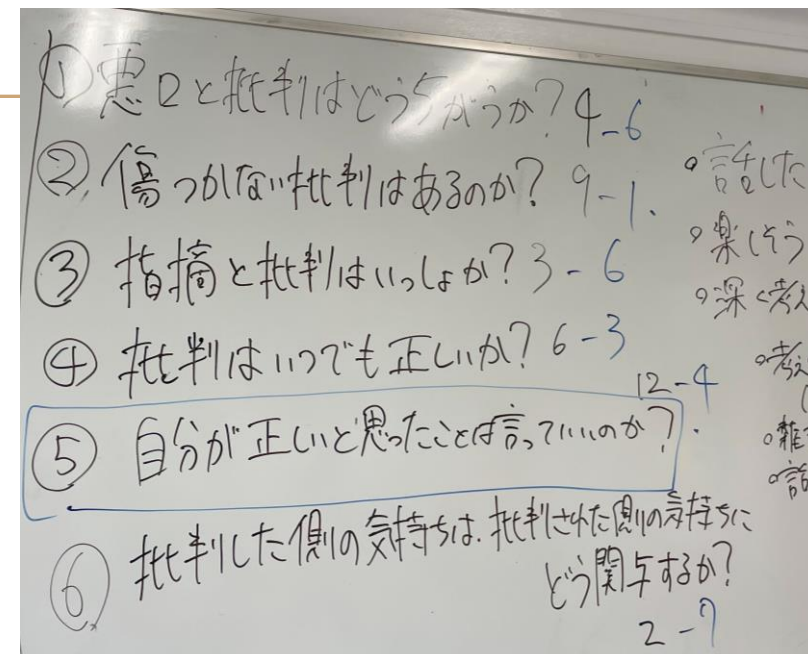 ① 悪口と批判はどうちがうか? 4-6
② 傷つかない批判はあるのか? 9-1.
③ 指摘と批判はいっしょか? 3-6
④ 批判はいつでも正しいか? 6-3
12-4
⑤ 自分が正しいと思ったことは言っていいのか?
⑥ 批判した側の気持ちは、批判された側の気持ちに
どう関与するか?
2-7
。話した
。楽しそう
。深く考え
。考え